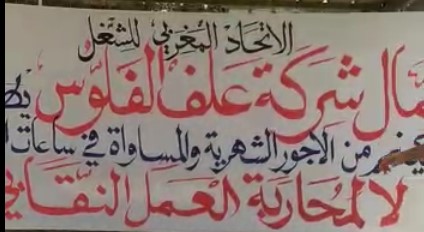 الاتحاد المغربي للشغل
مال شركة علف الفلوس يط
من الاجور الشهرية والمساواة في ساعات ا
لا لمحاربة العمل النقابي